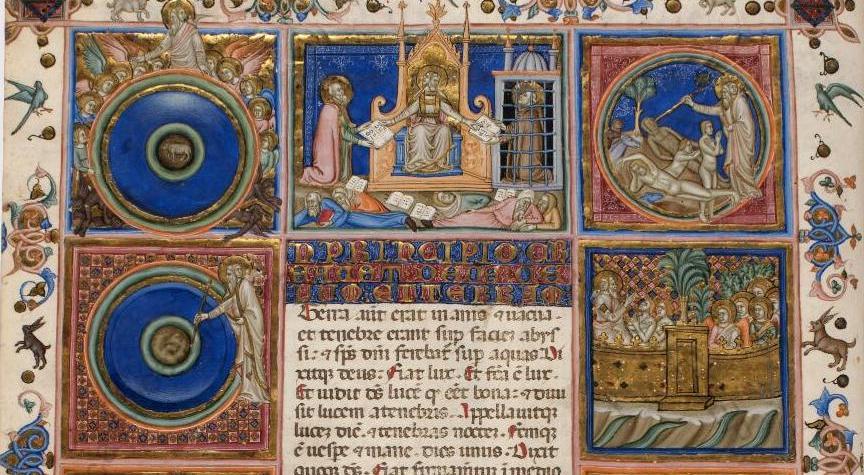 N PRINCIPIO CR
Terra aut erat inanis ⁊ uacua
et tenebre erant sup facieʒ abys
si: ⁊ sp̄s dn̄i ferebat sup aquas Di
xitqʒ deus: Fiat lux. Et fc̄a ē lux.
Et uidit ds̄ lucē qͥ eēt bona: ⁊ diui
sit lucem a tenebris. Appellauitqʒ
luceʒ diē. ⁊ tenebras nocteʒ. Fc̄mqʒ
ē uesꝑe ⁊ mane. dies unus. Dixit
quoqʒ ds̄. Fiat firmam̄tū ī medio